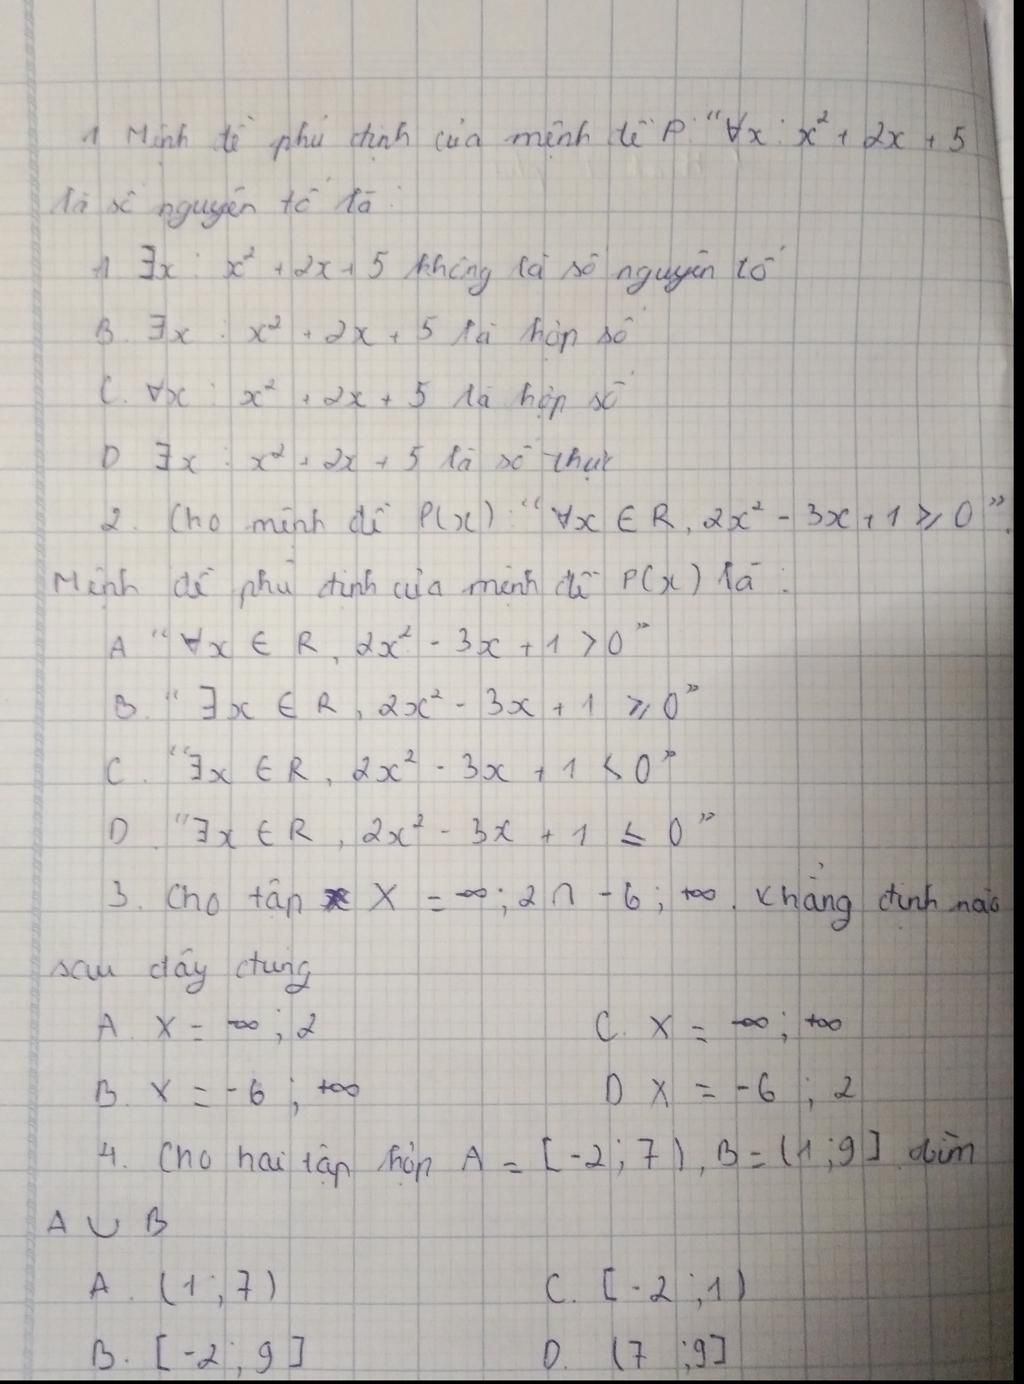 1 Mệnh đề phủ định của mệnh đề P: "∀x : x² + 2x + 5
là số nguyên tố là :
A ∃x : x² + 2x + 5 không là số nguyên tố
B. ∃x : x² + 2x + 5 là hợp số
C. ∀x : x² + 2x + 5 là hợp số
D ∃x : x² + 2x + 5 là số thực
2. Cho mệnh đề P(x) : "∀x ∈ R, 2x² - 3x + 1 ⩾ 0".
Mệnh đề phủ định của mệnh đề P(x) là :
A "∀x ∈ R, 2x² - 3x + 1 > 0"
B. "∃x ∈ R, 2x² - 3x + 1 ⩾ 0"
C. "∃x ∈ R, 2x² - 3x + 1 < 0"
D. "∃x ∈ R, 2x² - 3x + 1 ≤ 0"
3. Cho tập X = -∞ ; 2 ∩ -6 ; +∞. Khẳng định nào
sau đây đúng
A. X = -∞ ; 2 C. X = -∞ ; +∞
B. X = -6 ; +∞ D X = -6 ; 2
4. Cho hai tập hợp A = [-2 ; 7), B = (1 ; 9]
A ∪ B
A. (1 ; 7) C. [-2 ; 1)
B. [-2 ; 9] D. (7 ; 9]